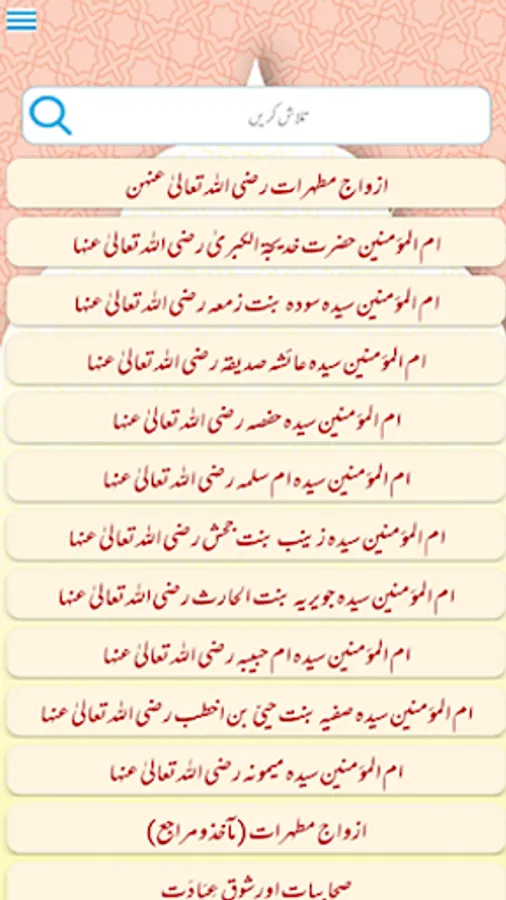 تلاش کریں
ازواج مطہرات رضی اللہ تعالیٰ عنہن
ام المؤمنین حضرت خدیجۃ الکبریٰ رضی اللہ تعالیٰ عنہا
ام المؤمنین سیدہ سودہ بنت زمعہ رضی اللہ تعالیٰ عنہا
ام المؤمنین سیدہ عائشہ صدیقہ رضی اللہ تعالیٰ عنہا
ام المؤمنین سیدہ حفصہ رضی اللہ تعالیٰ عنہا
ام المؤمنین سیدہ ام سلمہ رضی اللہ تعالیٰ عنہا
ام المؤمنین سیدہ زینب بنت جحش رضی اللہ تعالیٰ عنہا
ام المؤمنین سیدہ جویریہ بنت الحارث رضی اللہ تعالیٰ عنہا
ام المؤمنین سیدہ ام حبیبہ رضی اللہ تعالیٰ عنہا
ام المؤمنین سیدہ صفیہ بنت حیئ بن اخطب رضی اللہ تعالیٰ عنہا
ام المؤمنین سیدہ میمونہ رضی اللہ تعالیٰ عنہا
ازواج مطہرات (مآخذ و مراجع)
صحابیات اور شوقِ عِبَادَت